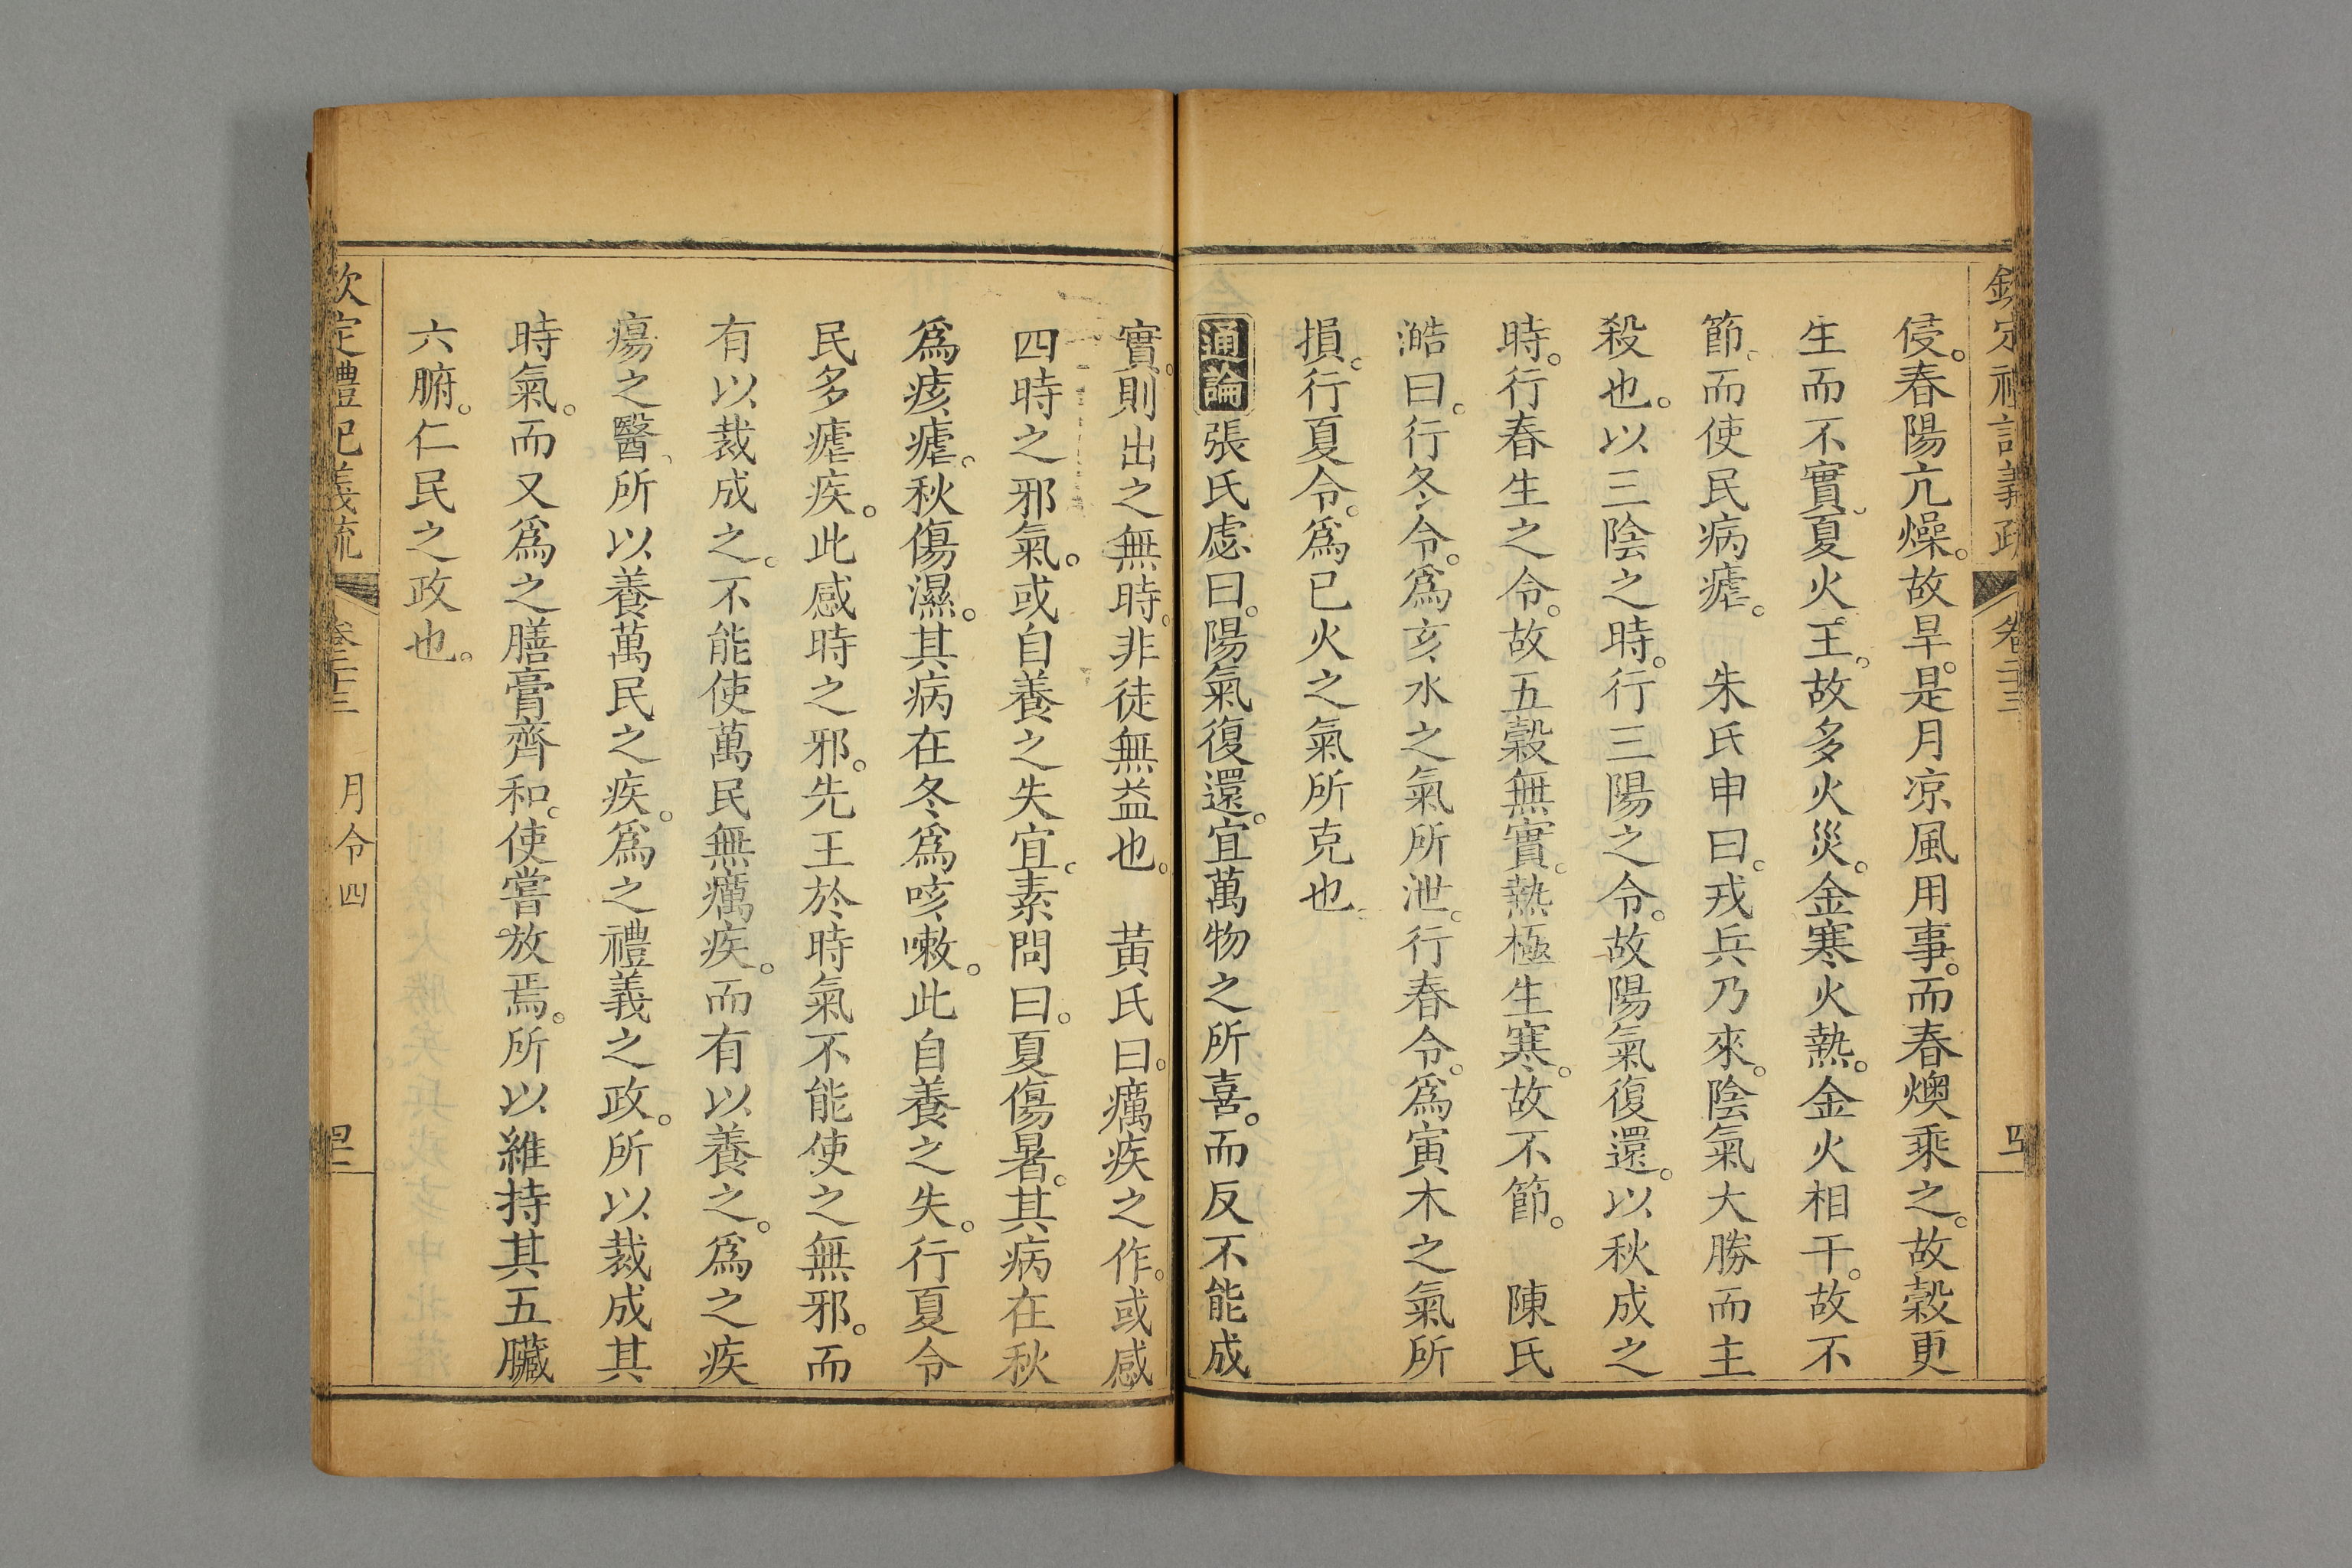 侵。春陽亢燥。故旱。是月凉風用事。而春燠乘之。故穀更
生而不實。夏火王。故多火災。金寒火熱。金火相干。故不
節。而使民病瘧。　朱氏申曰。戎兵乃來。陰氣大勝而主
殺也。以三陰之時。行三陽之令。故陽氣復還。以秋成之
時。行春生之令。故五穀無實。熱極生寒。故不節。　陳氏
澔曰。行冬令。爲亥水之氣所泄。行春令。爲寅木之氣所
損。行夏令。爲巳火之氣所克也。
通論張氏慮曰。陽氣復還。宜萬物之所喜。而反不能成
實。則出之無時。非徒無益也。　黃氏曰。癘疾之作。或感
四時之邪氣。或自養之失宜。素問曰。夏傷暑。其病在秋
爲痎瘧。秋傷濕。其病在冬爲咳嗽。此自養之失。行夏令
民多瘧疾。此感時之邪。先王於時氣不能使之無邪。而
有以裁成之。不能使萬民無癘疾。而有以養之。爲之疾
瘍之醫。所以養萬民之疾。爲之禮義之政。所以裁成其
時氣。而又爲之膳膏齊和。使嘗放焉。所以維持其五臟
六腑。仁民之政也。
欽定禮記義疏　卷二十三　月令四